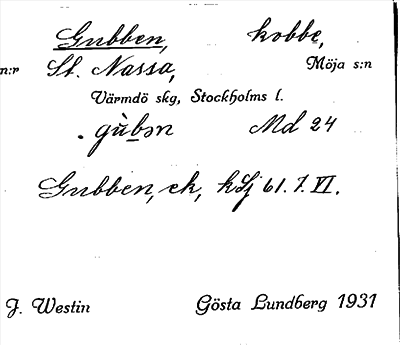 Gubben, kobbe,
n:r St. Nassa, Möja s:n
Värmdö skg, Stockholms l.
. gùbən Md 24
Gubben, ek, kSj 61. 7. VI.
J. Westin Gösta Lundberg 1931